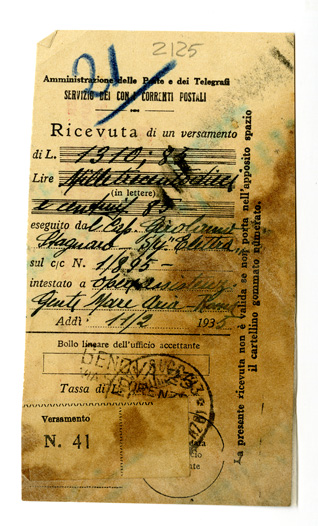 2125
21
Amministrazione delle Poste e dei Telegrafi
SERVIZIO DEI CONTI CORRENTI POSTALI
Ricevuta di un versamento
di L. 1310,85
Lire Milletrecentodieci
(in lettere)
e centesimi 85
eseguito dal Cap. Girolamo
Stagnaro
sul c/c N. 1/895
intestato a Opera assistenza
Gente Mare Aria - Roma
Addì 11/2 1935
Bollo lineare dell'ufficio accettante
GENOVA
Tassa di L.
Versamento
N. 41
La presente ricevuta non è valida se non porta nell'apposito spazio
il cartellino gommato numerato.